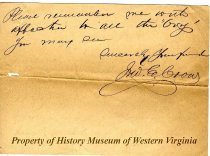 Please remember me with
affection to all the "boys"
you may see
Sincerely your friend
Jno. E.
Property of History Museum of Western Virginia